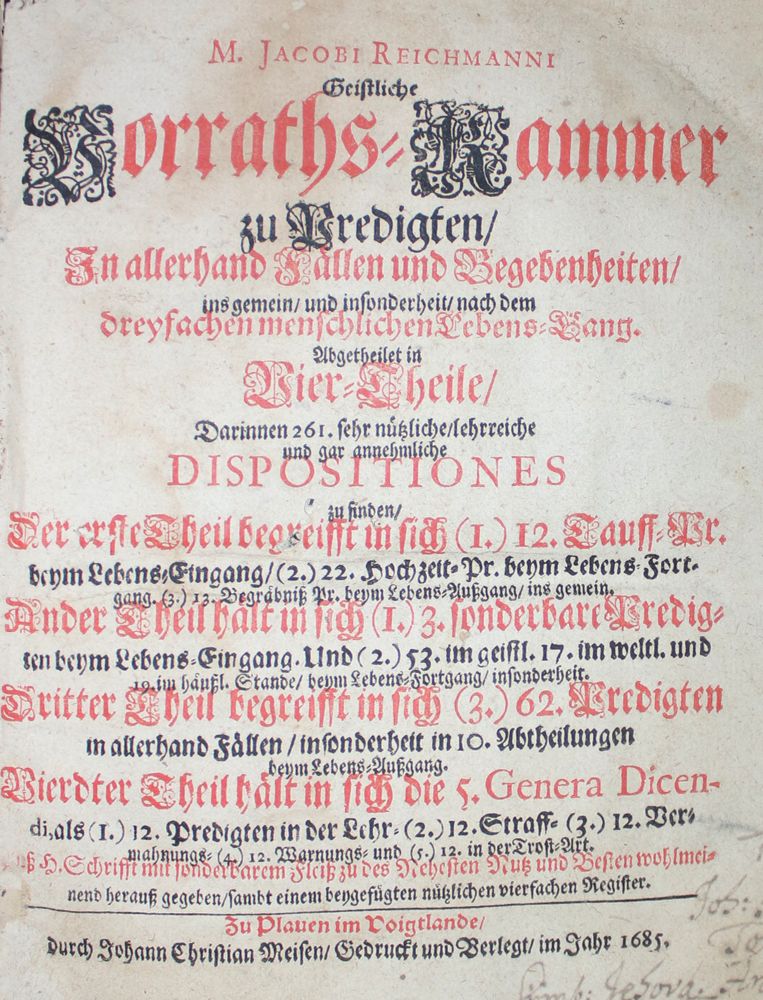 M. JACOBI REICHMANNI
Geistliche
Vorraths-Kammer
zu Predigten/
In allerhand Fällen und Begebenheiten/
ins gemein/ und insonderheit/ nach dem
dreyfachen menschlichen Lebens-Gang.
Abgetheilet in
Vier-Theile/
Darinnen 261. sehr nützliche/lehrreiche
und gar annehmliche
DISPOSITIONES
zu finden/
Der erste Theil begreifft in sich (1.) 12. Tauff-Pr.
beym Lebens-Eingang/ (2.) 22. Hochzeit-Pr. beym Lebens-Fort-
gang. (3.) 13. Begräbniß Pr. beym Lebens-Außgang/ ins gemein.
Ander Theil hält in sich (1.) 3. sonderbare Predig-
ten beym Lebens-Eingang. Und (2.) 53. im geistl. 17. im weltl. und
19. im häußl. Stande/ beym Lebens-Fortgang/ insonderheit.
Dritter Theil begreifft in sich (3.) 62. Predigten
in allerhand Fällen/ insonderheit in 10. Abtheilungen
beym Lebens-Außgang.
Vierdter Theil hält in sich die 5. Genera Dicen-
di, als (1.) 12. Predigten in der Lehr- (2.) 12. Straff- (3.) 12. Ver-
mahnungs- (4.) 12. Warnungs- und (5.) 12. in der Trost-Art.
H. Schrifft mit sonderbarem Fleiß zu des Nehesten Nutz und Besten wohlmei-
nend herauß gegeben/ sambt einem beygefügten nützlichen vierfachen Register.
Zu Plauen im Voigtlande/
durch Johann Christian Meisen/ Gedruckt und Verlegt/ im Jahr 1685.
Joh:
Jehova.